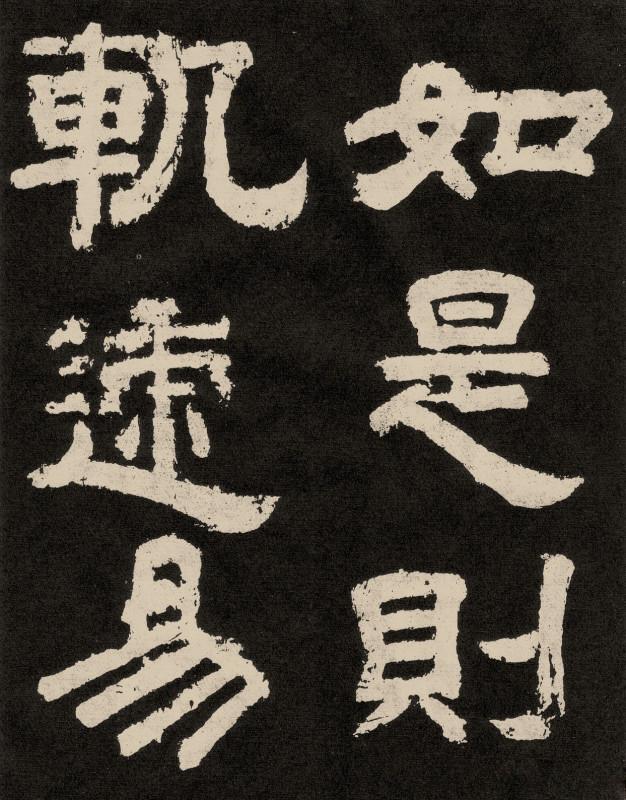 如是則
軌迹易